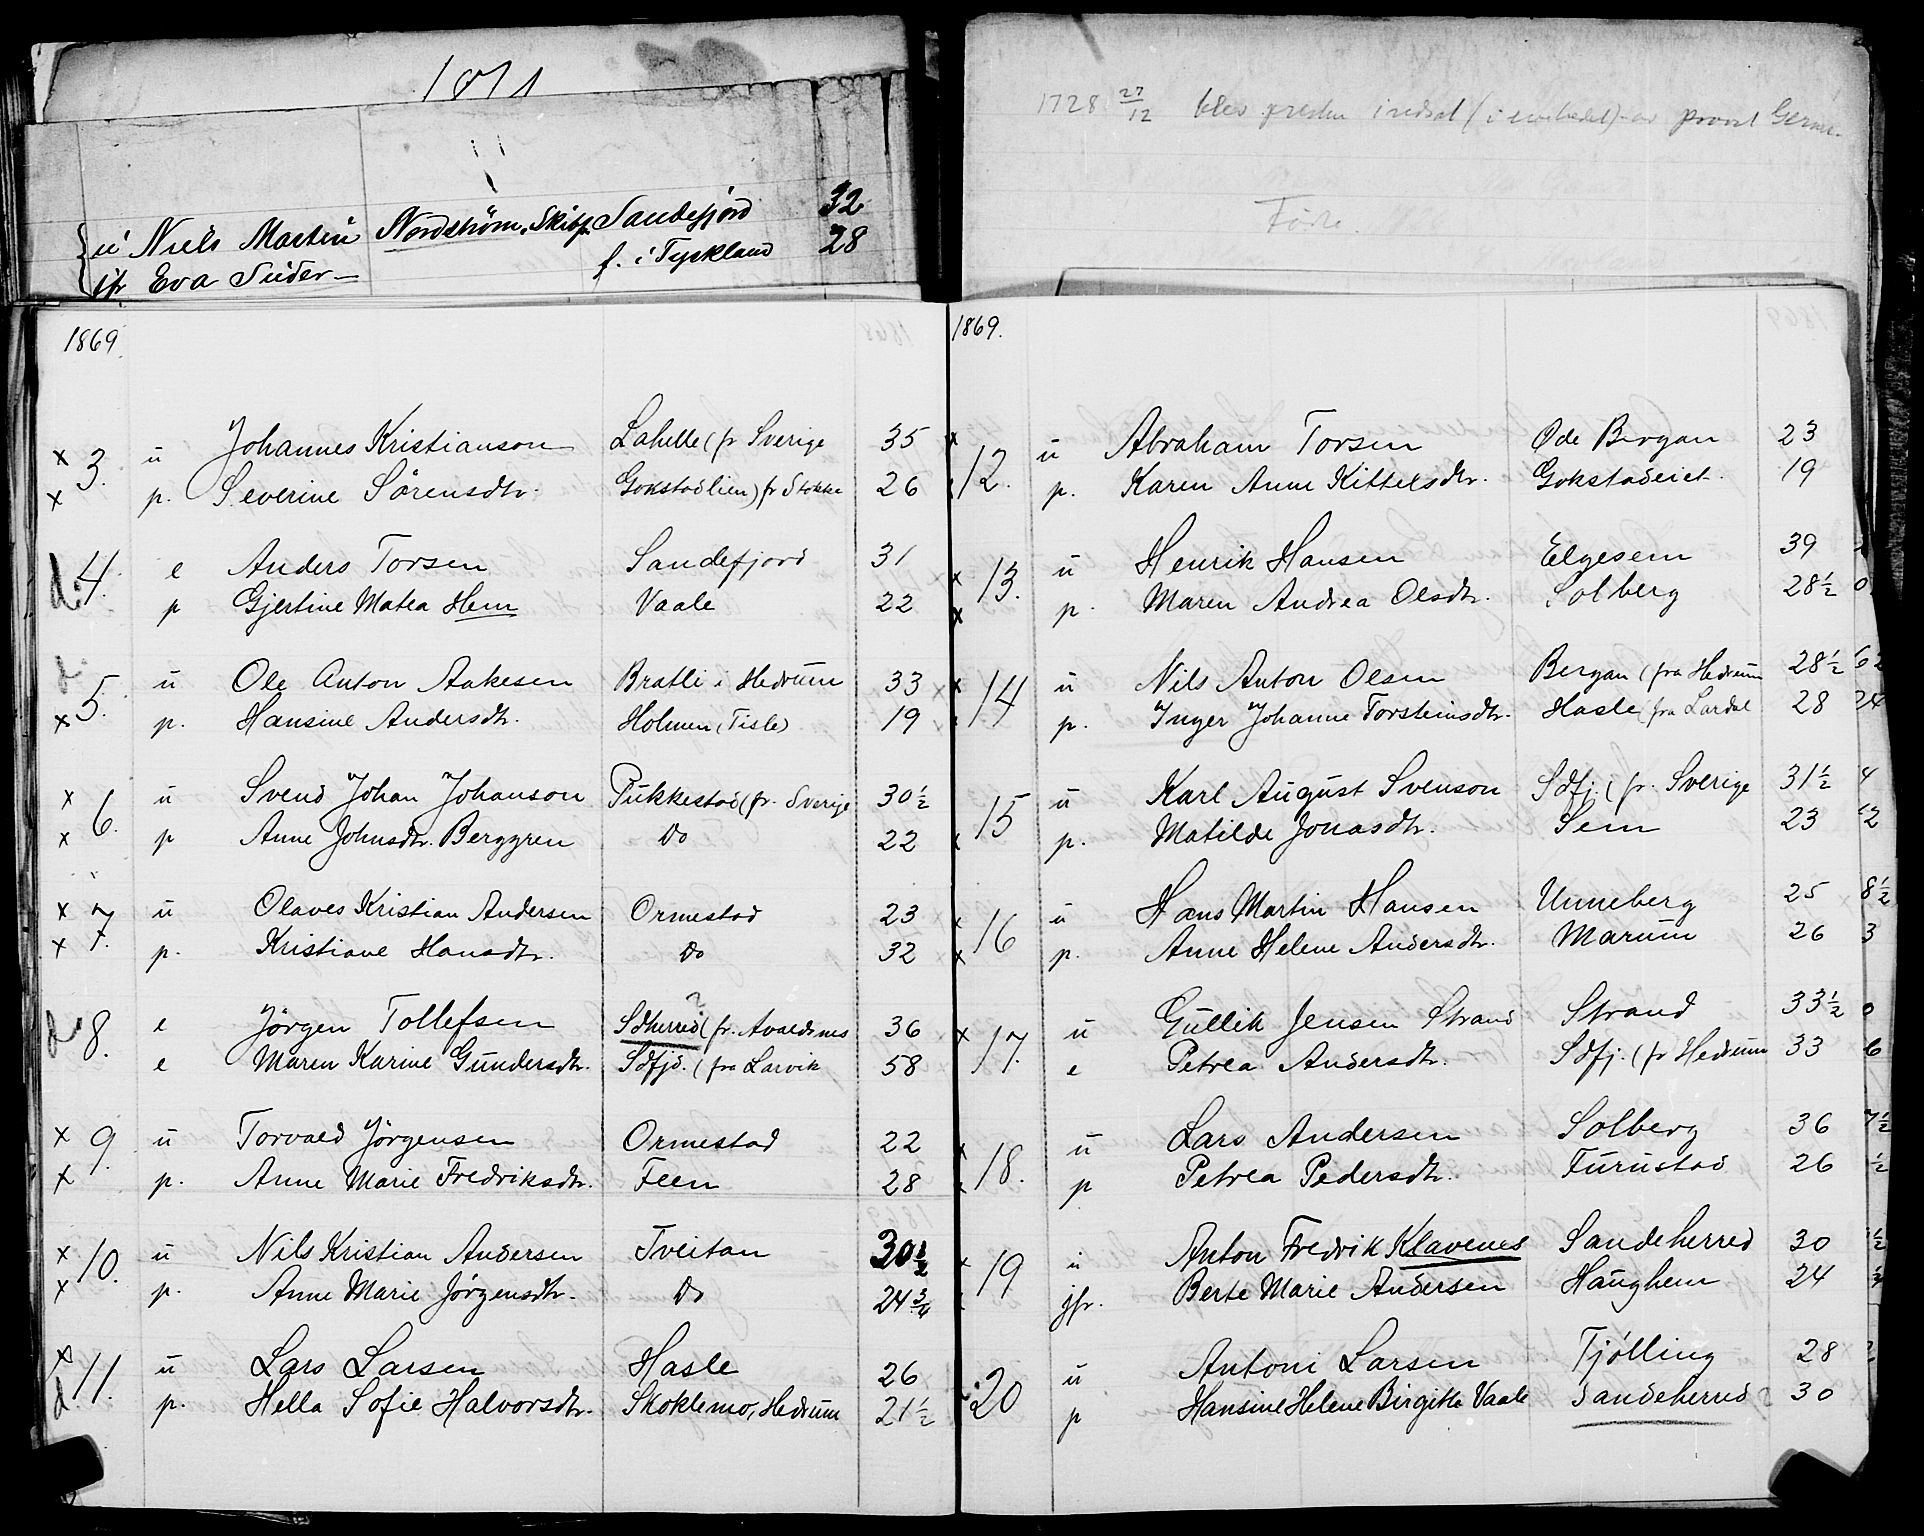 1871
{ u Niels Martin Nordström, Skibsf. Sandefjord 32
jfr Eva Suder f. i Tyskland 28
1869.
x 3. u Johannes Kristianson Lahelle (fr Sverige 35
x p. Severine Sörensdtr. Gokstadlien) fr Stokke 26
d. 4. e Anders Torsen Sandefjord 31
p Gjertine Matea Hem Vaale 22
d. 5. u Ole Anton Aakesen Bratli i Hedrum 33
x p. Hansine Andersdtr. Holmen (Tisle) 19
x 6. u Svend Johan Johanson Pukkestad (fr. Sverige 30 1/2
x p Anne Johnsdtr. Berggren Do 22
x 7. u Olaves Kristian Andersen Ormestad 23
x p. Kristiane Hansdtr. Do 32
d 8. e Jörgen Tollefsen Sdherred? (fr. Avaldsnes 36
e Maren Karine Gundersdtr. Sdfjd. (fra Larvik 58
x 9. u Torvald Jörgensen Ormestad 22
x p. Anne Marie Fredriksdtr. Feen 28
x 10. u Nils Kristian Andersen Tveitan 30 1/2
x p. Anne Marie Jörgensdtr. Do 24 3/4
x 11. u Lars Larsen Hasle 26
d p. Hella Sofie Halvorsdtr. Skoklemo, Hedrum 21 1/2
1728 27/12 blev presten indsat (i embedet) av provst
Födte.
1869.
x 12. u Abraham Torsen Öde Bergan 23
p. Karen Anne Kittelsdtr. Gokstadeiet. 19
x 13. u Henrik Hansen Elgesem 39
x p. Maren Andrea Olsdtr. Solberg 28 1/2 0
x 14 u Nils Anton Olsen Bergan (fra Hedrum 28 1/2
p. Inger Johanne Torsteinsdtr. Hasle (fra Lardal 28 24
15 u Karl August Svenson Sdfj. (fr. Sverige 31 1/2 4
x p. Matilde Jonasdtr. Sem 23 2
x 16 u Hans Martin Hansen Unneberg 25 8 1/2
x p. Anne Helene Andersdtr. Marum 26 3
x 17. u Gullik Jensen Strand Strand 33 1/2 0
e Petrea Andersdtr. Sdfj. (fr Hedrum 33 6
x 18. u Lars Andersen Solberg 36 7 1/2
x p Petrea Pedersdtr. Furustad 26 1/2
x 19 u Anton Fredrik Klavenes Sandeherred 30 1/2
jfr. Berte Marie Andersen Haughem 24
20 u Antoni Larsen Tjölling 28
p Hansine Helene Birgitte Vaale Sandeherred? 30